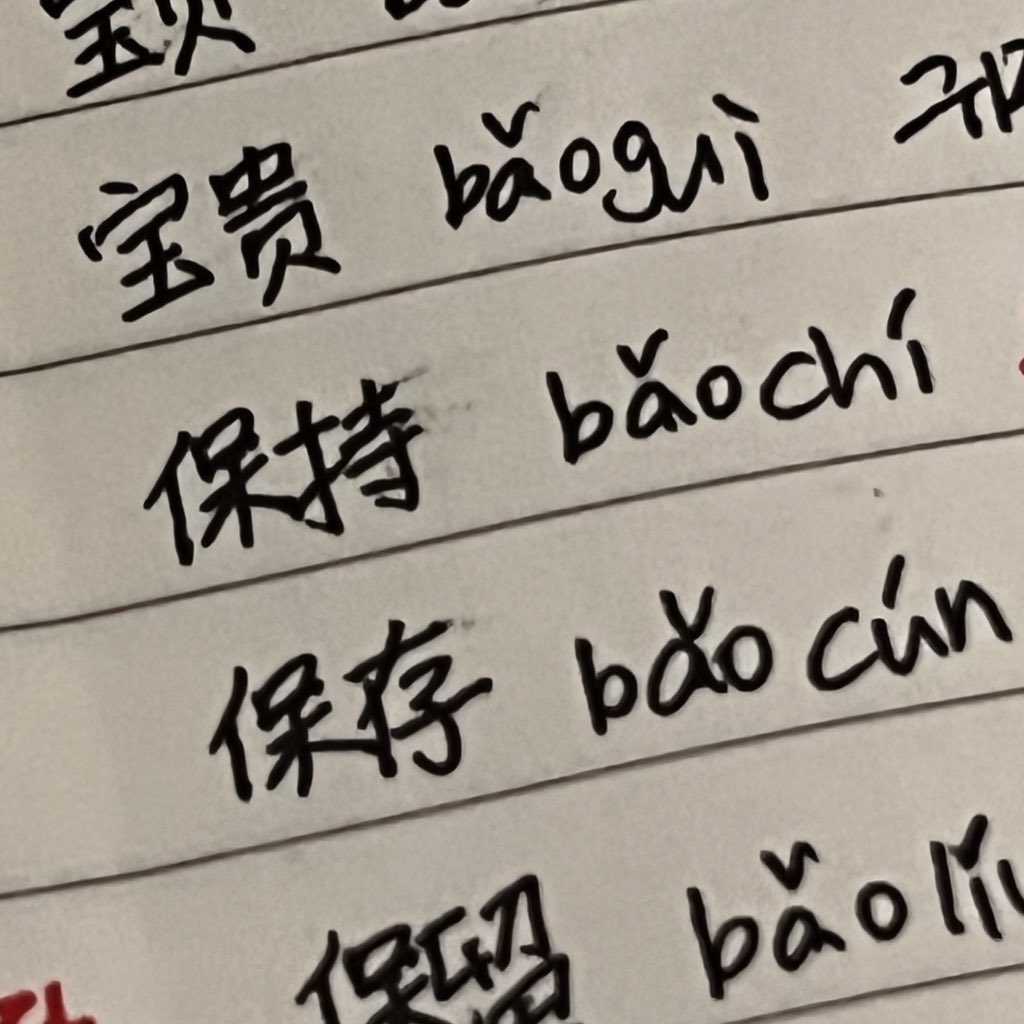 宝贵 bǎoguì 귀
保持 bǎochí
保存 bǎocún
保留 bǎoliú